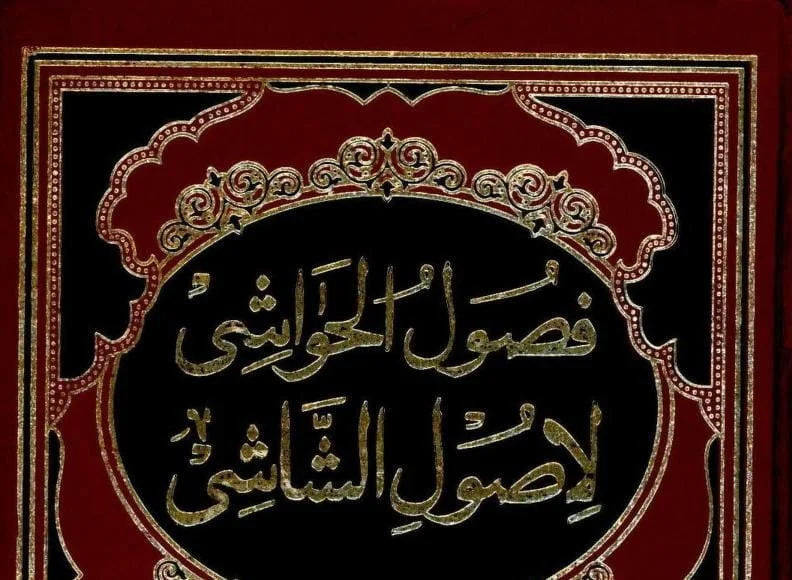 فُصُولُ الحَوَاشِيْ
لِاصُوْلِ الشَّاشِيْ